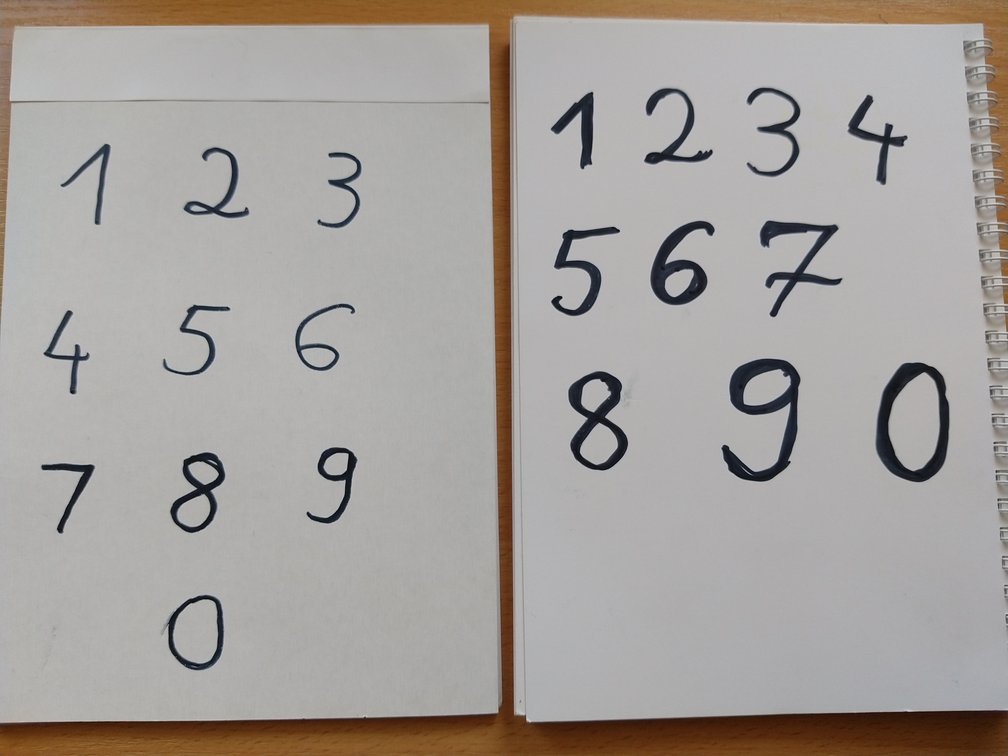 1 2 3
4 5 6
7 8 9
0
1 2 3 4
5 6 7
8 9 0